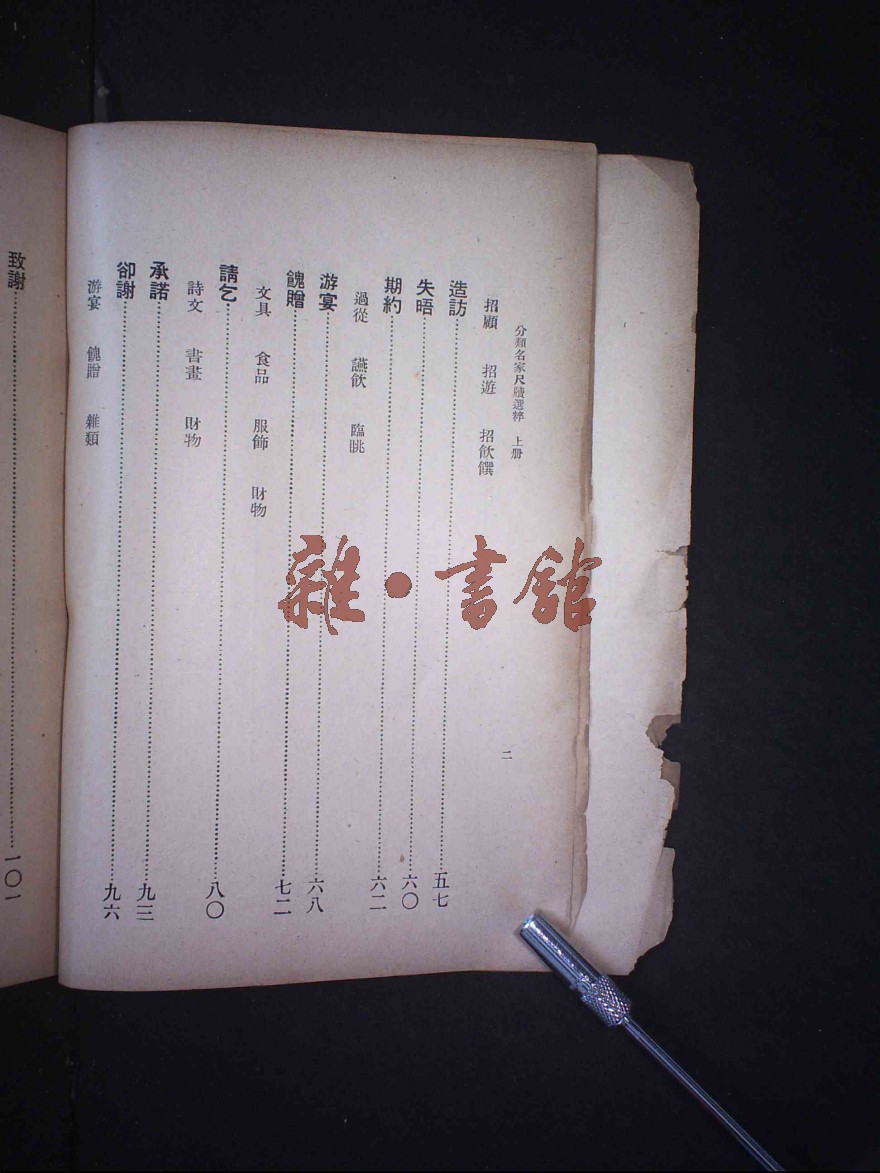 分類名家尺牘選粹 上册
二
招顧 招遊 招飲饌
造訪……五七
失晤……六〇
期約……六二
過從 讌飲 臨眺
游宴……六八
餽贈……七二
文具 食品 服飾 財物
請乞……八〇
詩文 書畫 財物
承諾……九三
卻謝……九六
游宴 餽贈 雜類
致謝……一〇一
雜·書館